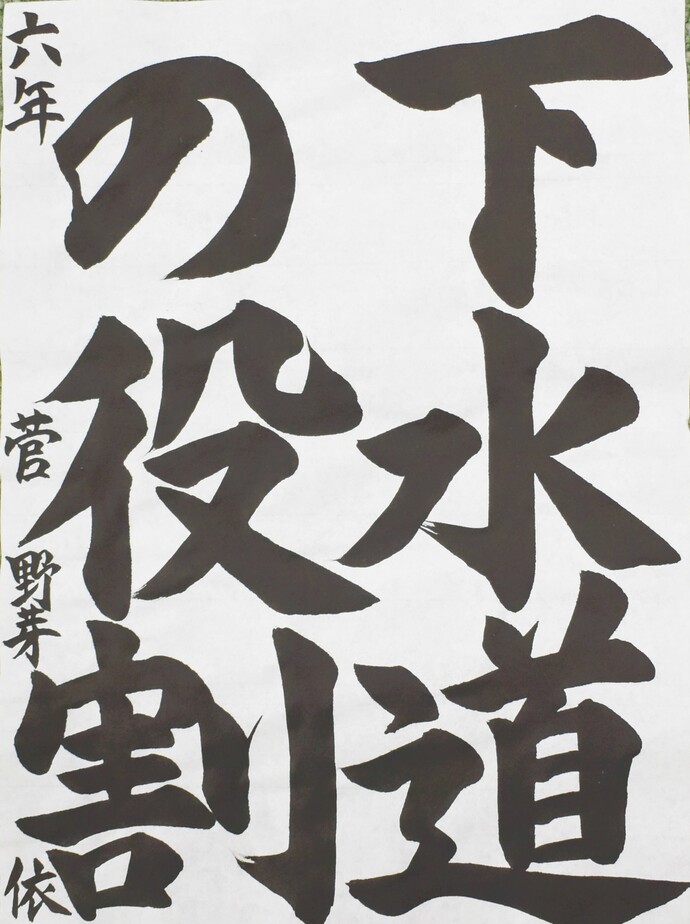 下水道
の役割
六年 菅野芽依